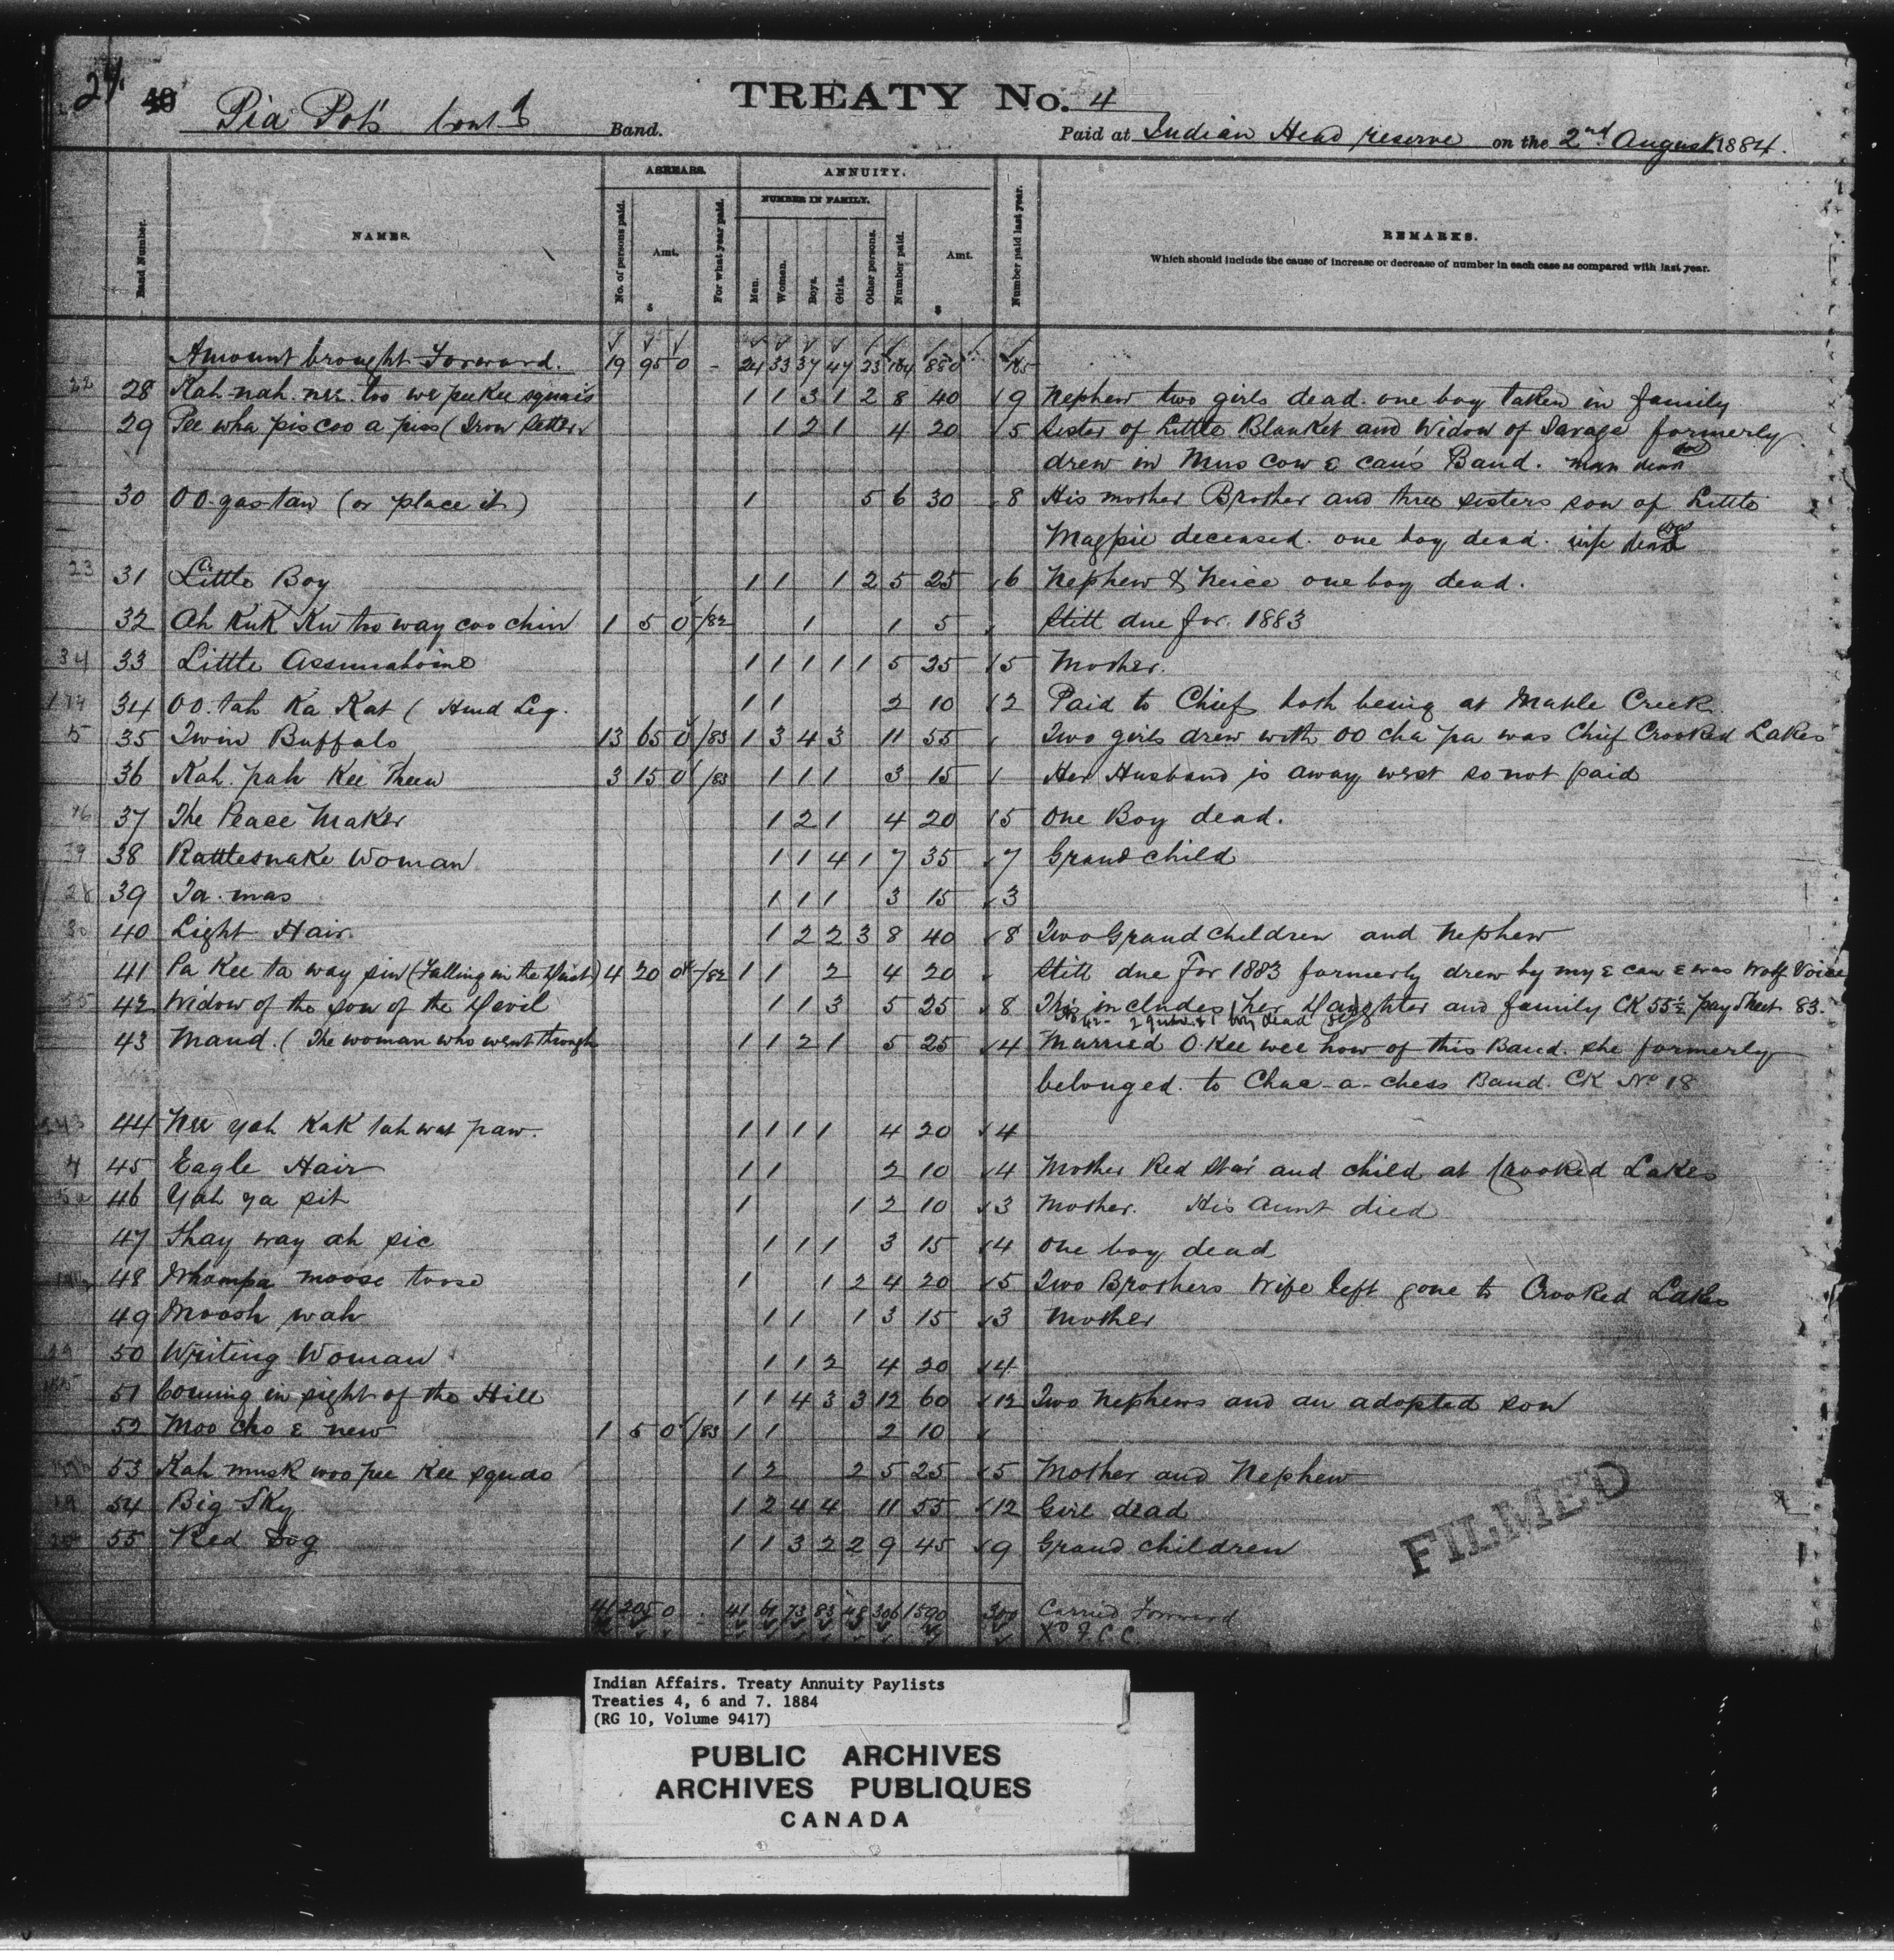 24 40
Pia Pots Cont'd Band.
TREATY No. 4
Paid at Indian Head reserve on the 2nd August 1884.
Band Number.
NAMES.
ARREARS.
No. of persons paid.
Amt. $
For what year paid.
ANNUITY.
NUMBER IN FAMILY.
Men. Women. Boys. Girls. Other persons.
Number paid.
Amt. $
Number paid last year.
REMARKS.
Which should include the cause of increase or decrease of number in each case as compared with last year.
Amount brought Forward. 19 95 0 - 24 33 37 47 23 164 880 165
22 28 Kah nah nee too we pee kee squais 1 1 3 1 2 8 40 9 Nephew two girls dead. one boy taken in family
29 Pee wha pis coo a piss (Iron Setter 1 2 1 4 20 5 Sister of Little Blanket and Widow of Savage formerly
drew in Mus cow & can's Band. man dead
30 OO gas taw (or place it) 1 5 6 30 8 His mother Brother and three sisters son of Little
Magpie deceased. one boy dead. wife dead
23 31 Little Boy 1 1 1 2 5 25 6 Nephew & Neice one boy dead.
32 Ah Kuk Ku too way coo chin 1 5 0 /82 1 1 5 Still due for 1883
34 33 Little Assinaboine 1 1 1 1 1 5 25 5 Mother.
34 OO tah Ka Kat ( Hind Leg. 1 1 2 10 2 Paid to Chief both being at Maple Creek
5 35 Twin Buffalo 13 65 0 /83 1 3 4 3 11 55 Two girls drew with OO cha pa was Chief Crooked Lakes
36 Kah pah Kee Theen 3 15 0 /83 1 1 1 3 15 Her Husband is away west so not paid
37 The Peace Maker 1 2 1 4 20 5 One Boy dead.
39 38 Rattlesnake Woman 1 1 4 1 7 35 7 Grand child
28 39 Ta mas 1 1 1 3 15 3
30 40 Light Hair 1 2 2 3 8 40 8 Two Grand children and Nephew
41 Pa Kee ta way sin (Falling in the Dust) 4 20 0 /82 1 1 2 4 20 Still due for 1883 formerly drew by my & can & was Wolf Voice
55 42 Widow of the son of the Devil 1 1 3 5 25 8 This includes her Daughter and family CK 55½ pay sheet 83.
43 Maud. ( The woman who went through 1 1 2 1 5 25 4 Married O Kee wee how of this Band. she formerly
belonged to Chac-a-chess Band. CK No 18
44 Nee yah Kak tah wat paw. 1 1 1 1 4 20 4
4 45 Eagle Hair 1 1 2 10 4 Mother Red Star and child at Crooked Lakes
46 Yah ya sit 1 1 2 10 3 Mother. His Aunt died
47 Shay way ah sic 1 1 1 3 15 4 One boy dead
48 Whampa moose toose 1 1 2 4 20 5 Two Brothers Wife left gone to Crooked Lakes
49 Moosh wah 1 1 1 3 15 3 Mother
50 Writing Woman 1 1 2 4 20 4
51 Coming in sight of the Hill 1 1 4 3 3 12 60 12 Two Nephews and an adopted son
52 Moo cho & new 1 5 0 /83 1 1 2 10
53 Kah musk woo pee Kee squao 1 2 2 5 25 5 Mother and Nephew
19 54 Big Sky 1 2 4 4 11 55 12 Girl dead
55 Red Dog 1 1 3 2 2 9 45 9 Grand children
FILMED
41 205 0 41 61 73 83 48 306 1590 300 Carried Forward
Indian Affairs. Treaty Annuity Paylists
Treaties 4, 6 and 7. 1884
(RG 10, Volume 9417)
PUBLIC ARCHIVES
ARCHIVES PUBLIQUES
CANADA